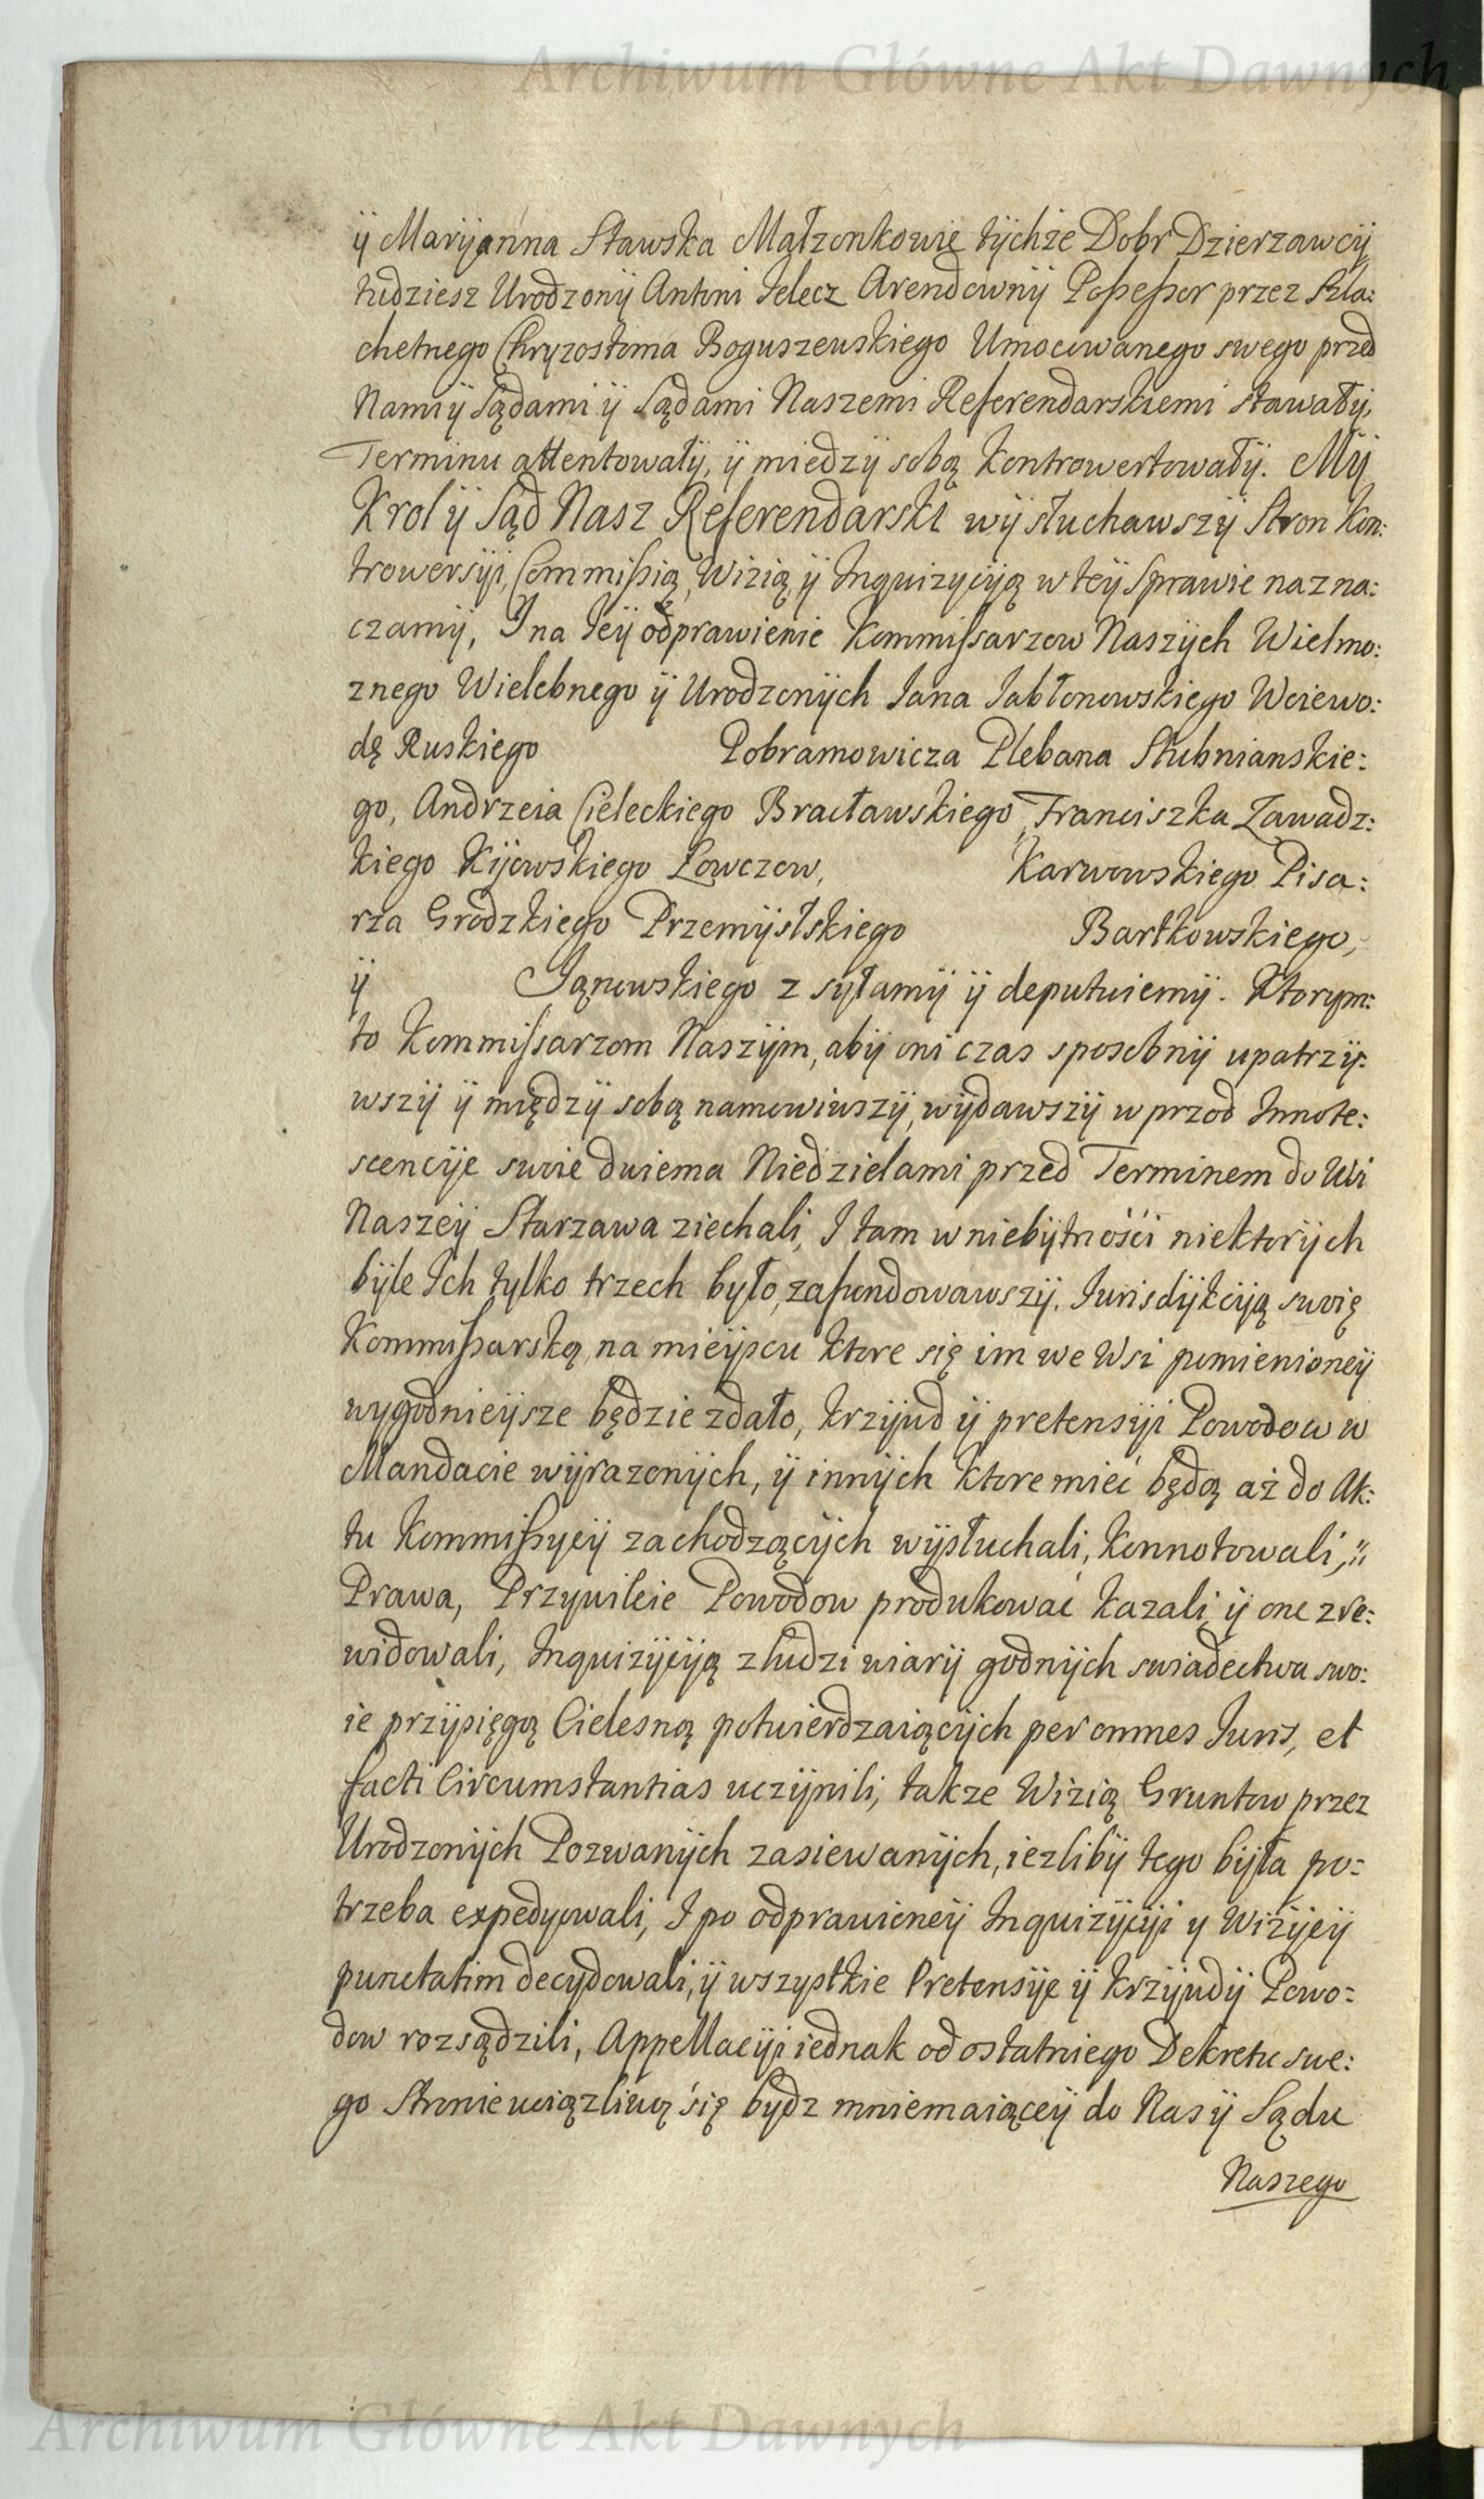 Archiwum Główne Akt Dawnych
ÿ Marÿanna Stawska Małzonkowie tÿchże Dobr Dzierzawcÿ
tudziesz Urodzonÿ Antoni Jelecz Arendownÿ Possessor przez Szla:
chetnego Chryzostoma Boguszewskiego Umocowanego swego przed
Nami ÿ Sądami ÿ Sądami Naszemi Referendarskiemi stawałÿ,
Terminu attentowałÿ, ÿ miedzÿ sobą kontrowertowałÿ. Mÿ
Krol ÿ Sąd Nasz Referendarski wÿsłuchawszÿ Stron Kon:
trowersÿi, Commissią, Wizią, ÿ Inquizycÿą w teÿ Sprawie nazna:
czamÿ, I na Jeÿ odprawienie Kommissarzow Naszÿch Wielmo:
znego Wielebnego ÿ Urodzonÿch Jana Jabłonowskiego Woiewo:
dę Ruskiego Dobramowicza Plebana Stubnianskie:
go, Andrzeia Cieleckiego Bracławskiego, Franciszka Zawadz:
kiego Kijowskiego Łowczow, Karwowskiego Pisa:
rza Grodzkiego Przemÿslskiego Bartkowskiego,
ÿ Janowskiego z syłamÿ ÿ deputuiemÿ. Ktorym:
to Kommissarzom Naszÿm, abÿ oni czas sposobnÿ upatrzÿ:
wszÿ ÿ międzÿ sobą namowiwszÿ, wÿdawszÿ w przod Innote:
scencÿe swoie dwiema Niedzielami przed Terminem do Wsi
Naszeÿ Starzawa ziechali, I tam w niebÿtności niektorÿch
bÿle Ich tylko trzech było, zafundowawszÿ. Jurisdÿkcÿą swoię
Kommissarską, na mieÿscu ktore się im we Wsi pomienioneÿ
wygodnieÿsze będzie zdało, krzÿwd ÿ pretensÿi Powodow w
Mandacie wÿrazonÿch, ÿ innÿch ktore mieć będą aż do Ak:
tu Kommissyeÿ zachodzącÿch wÿsłuchali, konnotowali,
Prawa, Przywileie Powodow produkować kazali, ÿ one zre:
widowali, Inquizÿcÿą z ludzi wiarÿ godnÿch swiadectwa swo:
ie przÿsięgą Cielesną potwierdzaiącÿch per omnes Juris, et
facti Circumstantias uczÿnili, takze Wizią Gruntow przez
Urodzonÿch Pozwanÿch zasiewanÿch, iezlibÿ tego bÿła po:
trzeba expedyowali, I po odprawioneÿ Inquizÿcÿi y Wizÿeÿ
punctatim decydowali, ÿ wszystkie Pretensÿe ÿ krzÿwdÿ Powo:
dow rozsądzili, Appellacÿi iednak od ostatniego Dekretu swe:
go Stronie uciązliwą się bydz mniemaiąceÿ do Nas ÿ Sądu
Naszego
Archiwum Główne Akt Dawnych